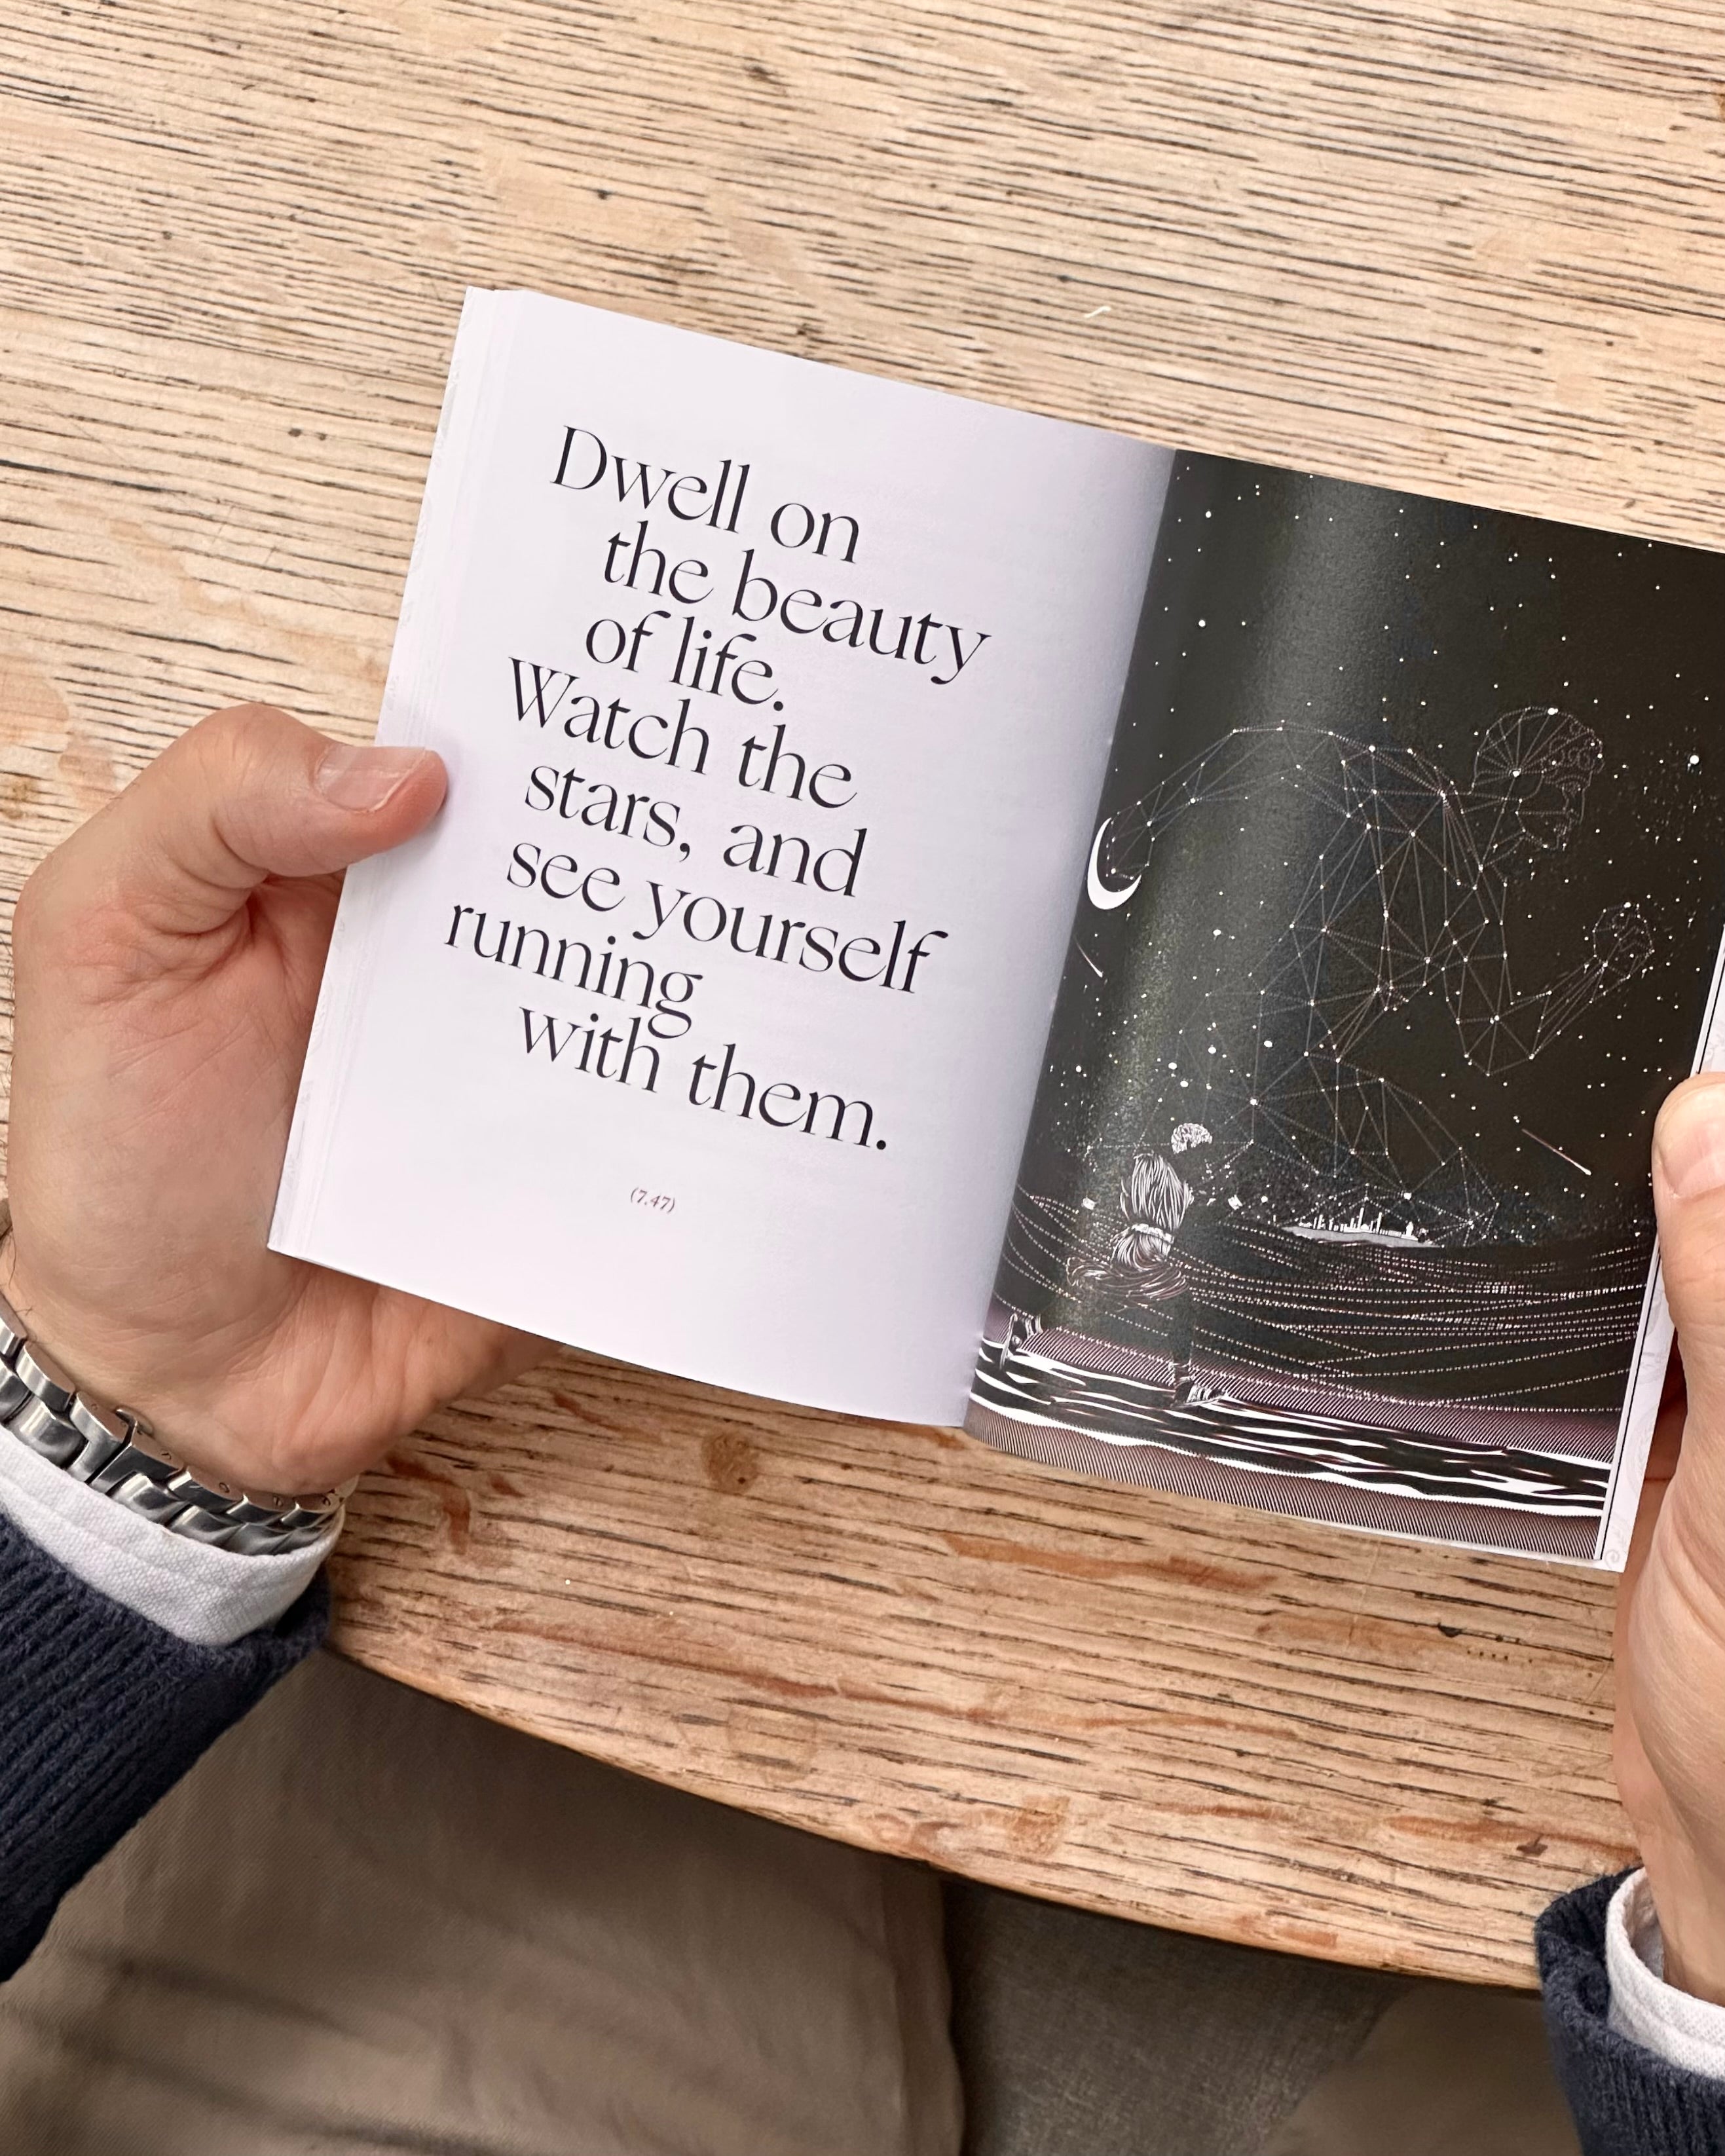 Dwell on
the beauty
of life.
Watch the
stars, and
see yourself
running
with them.
(7.47)